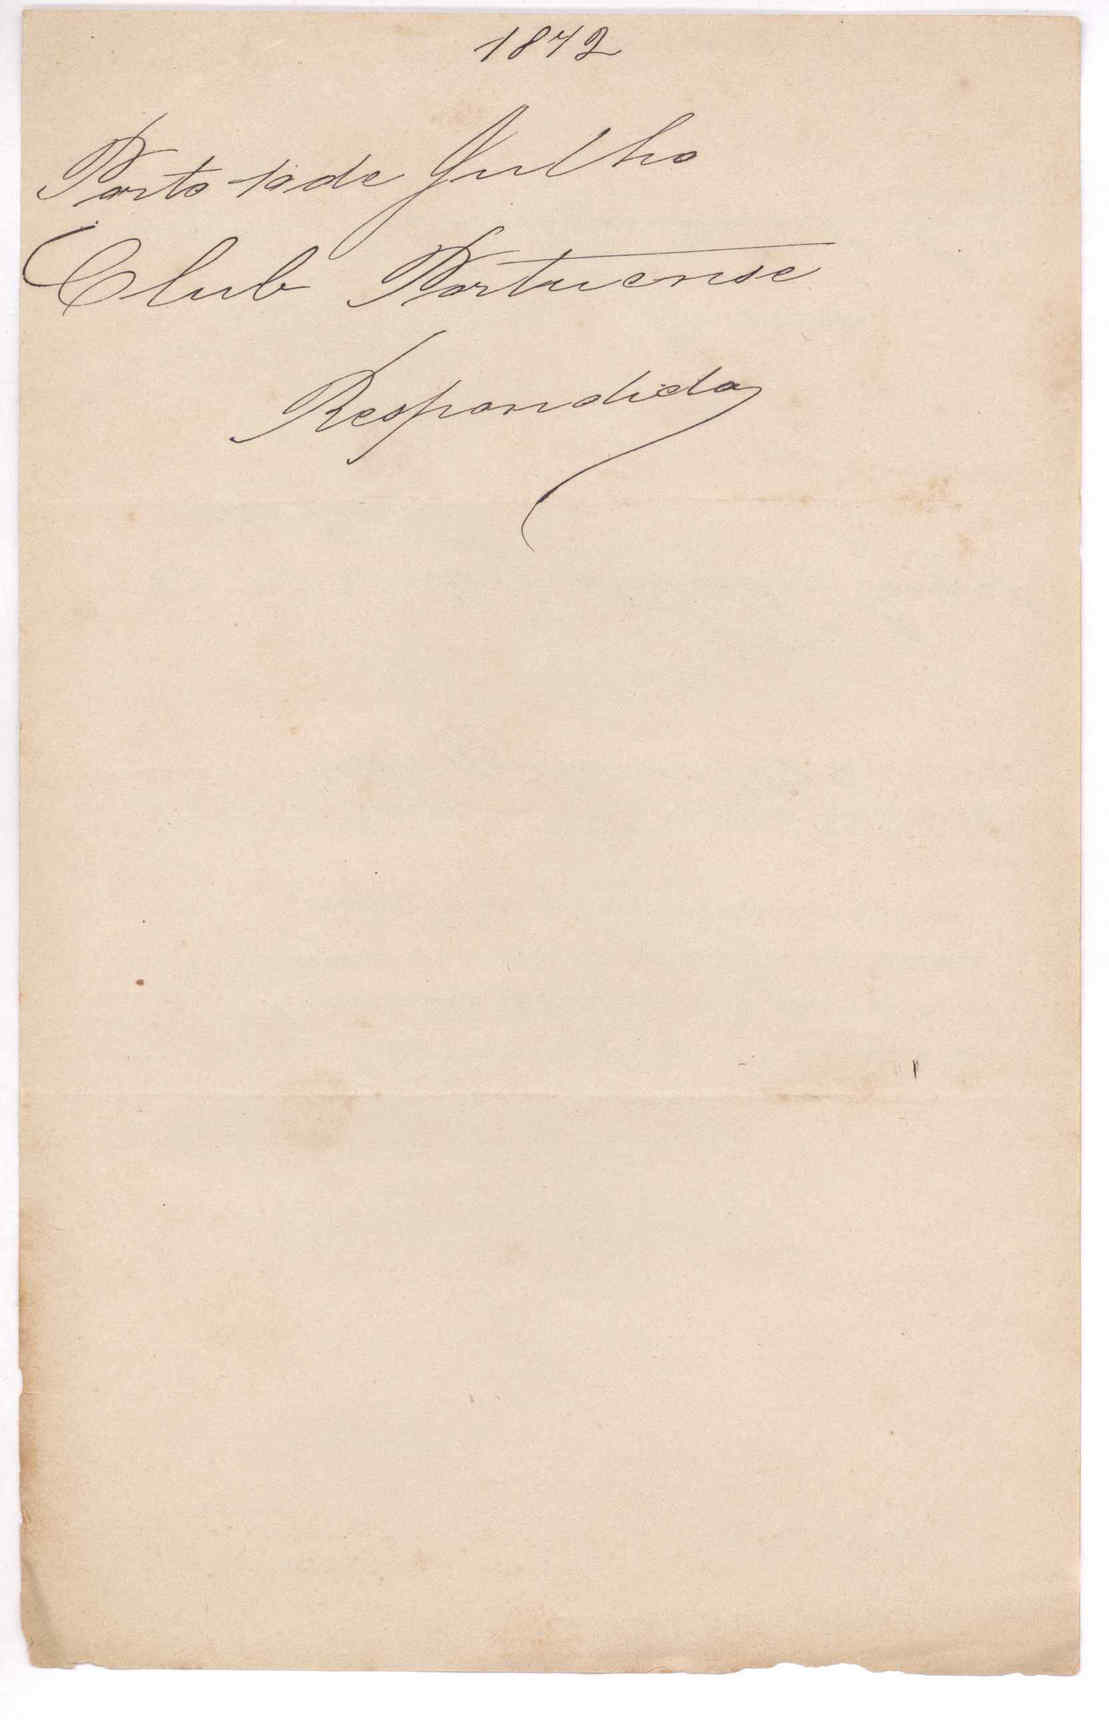 1872
Porto 10 de Julho
Club Portuense
Respondida